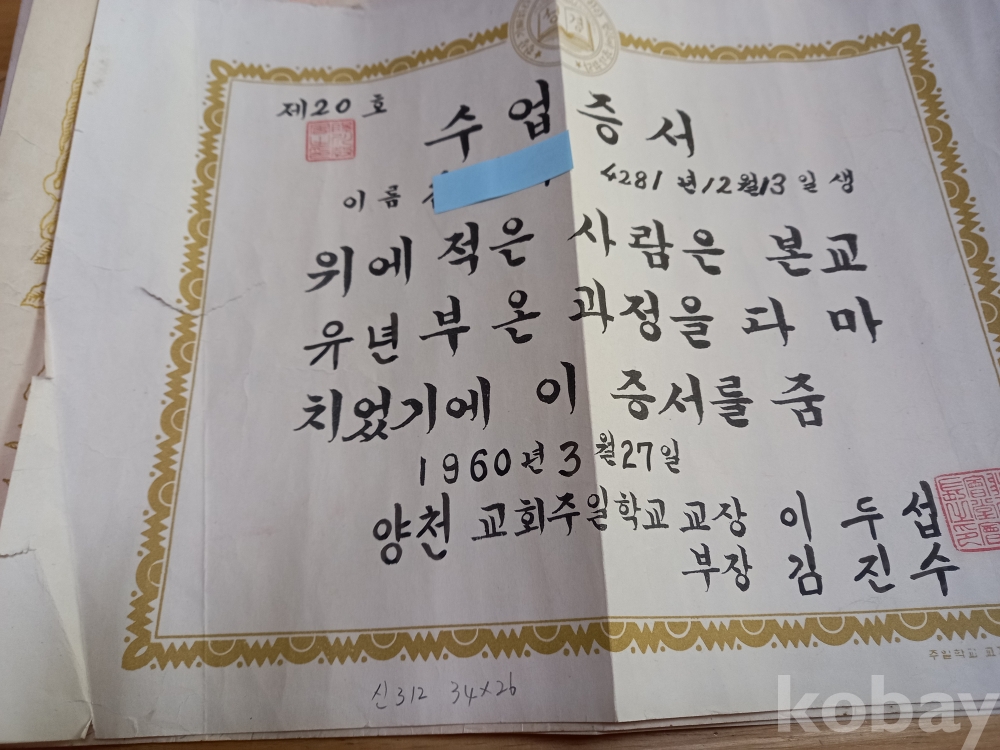 성경
제20호
수업증서
이름
4281년12월13일생
위에 적은 사람은 본교
유년부 온 과정을 다 마
치었기에 이 증서를 줌
1960년 3월27일
양천 교회주일학교 교장 이두섭
부장 김진수
주일학교
신312 34×26
kobay